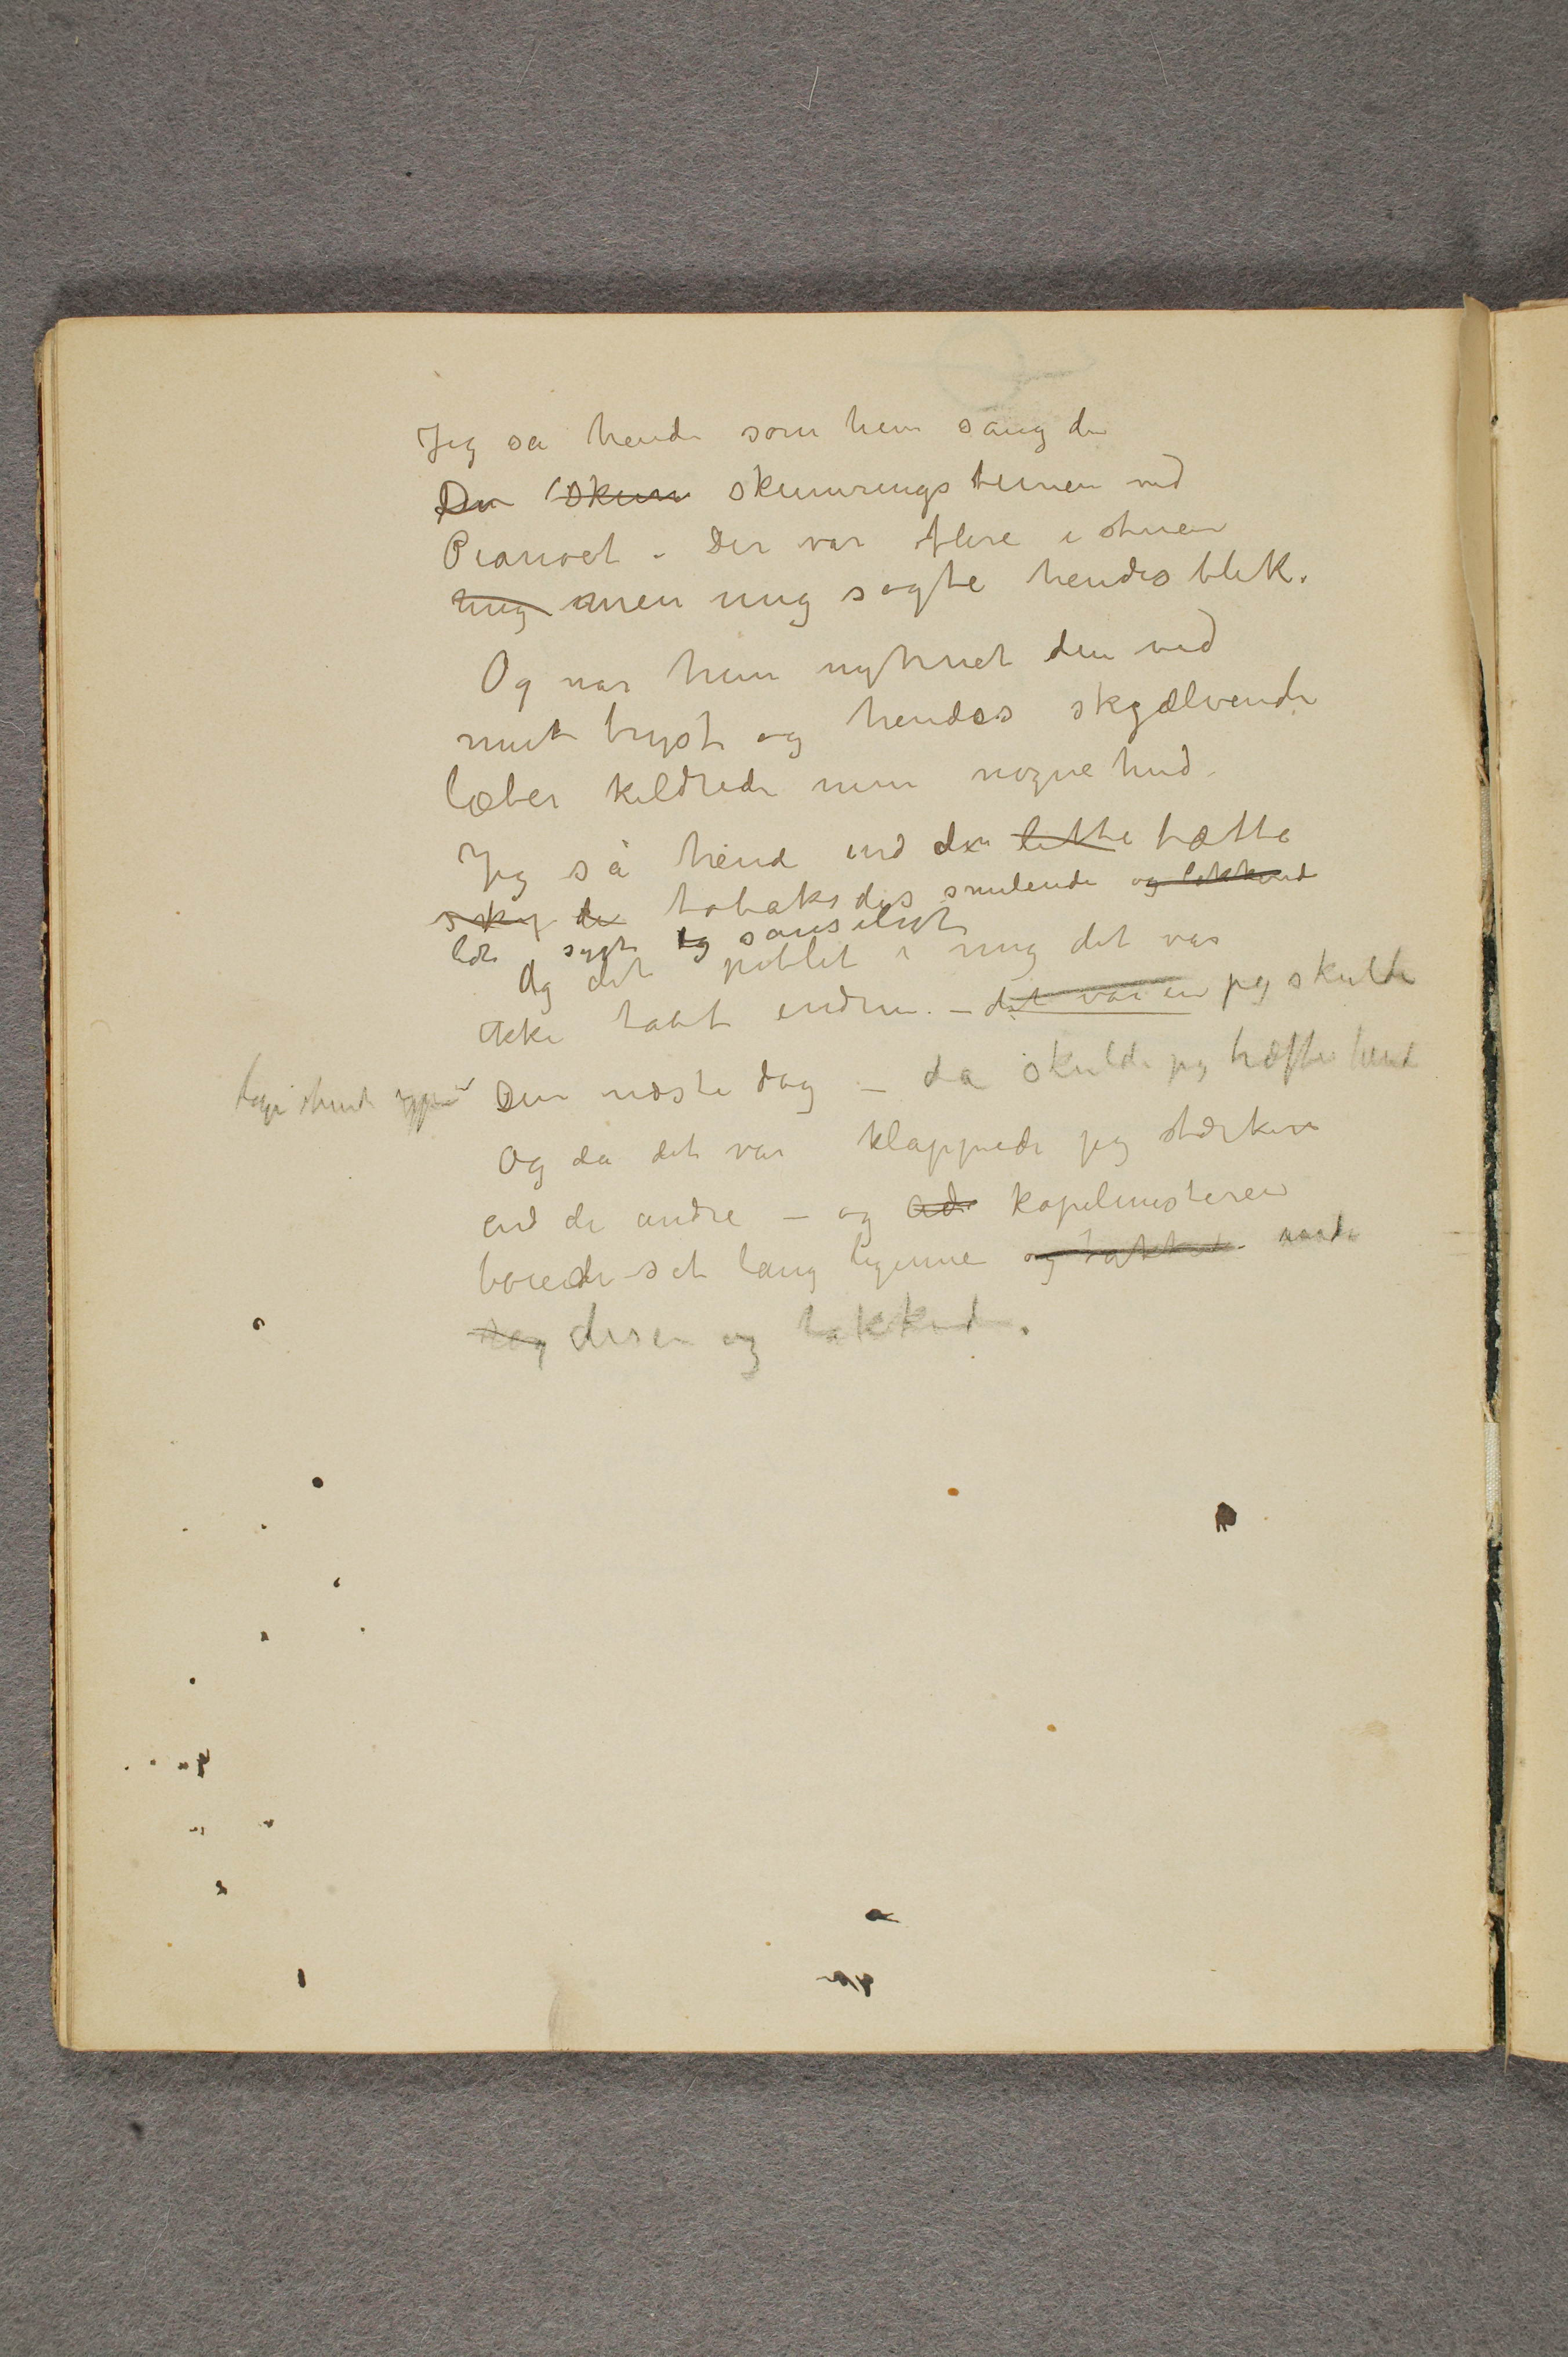 Jeg så hende som hun sang den
Den Skum skumringstimen ved
Pianoet – Der var flere i stuen
mig men mig søgte hendes blik.
Og når hun nynnet den ved
mit bryst og hendes skjælvende
læber kildrede min nøgne hud.
Jeg så hend ind den lette tætte
sky de tobaksdis smilende og lokkend
lidt sygt og sanseligt
Og det piblet i mig det var
ikke tabt endnu. – det var en jeg skulde
Den næste dag – da skulde jeg træffe hend
tage hende igjen
Og da det var klappede jeg stærkere
end de andre – og kapelmesteren
bøiede sit lang legeme og takked
disen og takked.